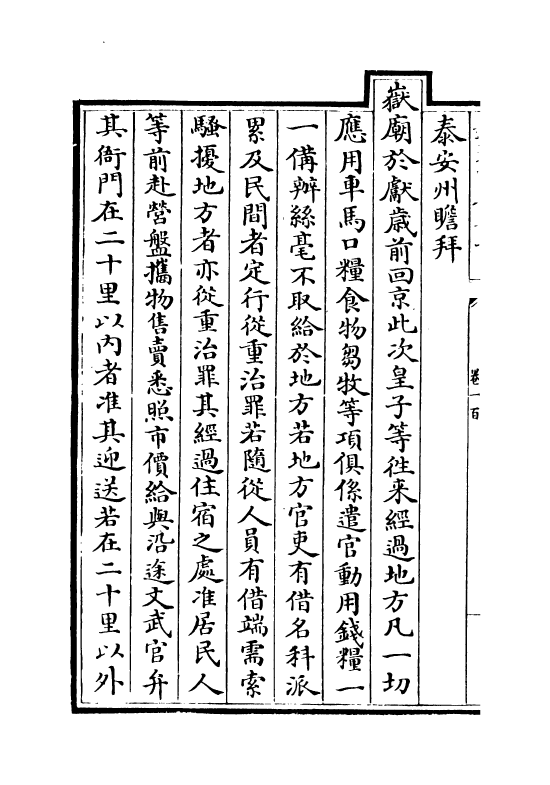 泰安州瞻拜
嶽廟於獻歲前回京此次皇子等往来經過地方凡一切
應用車馬口糧食物芻牧等項俱係遣官動用錢糧一
一備辦絲毫不取給於地方若地方官吏有借名科派
累及民間者定行從重治罪若隨從人員有借端需索
騷擾地方者亦從重治罪其經過住宿之處准居民人
等前赴營盤攜物售賣悉照市價給與沿途文武官弁
其衙門在二十里以內者准其迎送若在二十里以外
卷一百